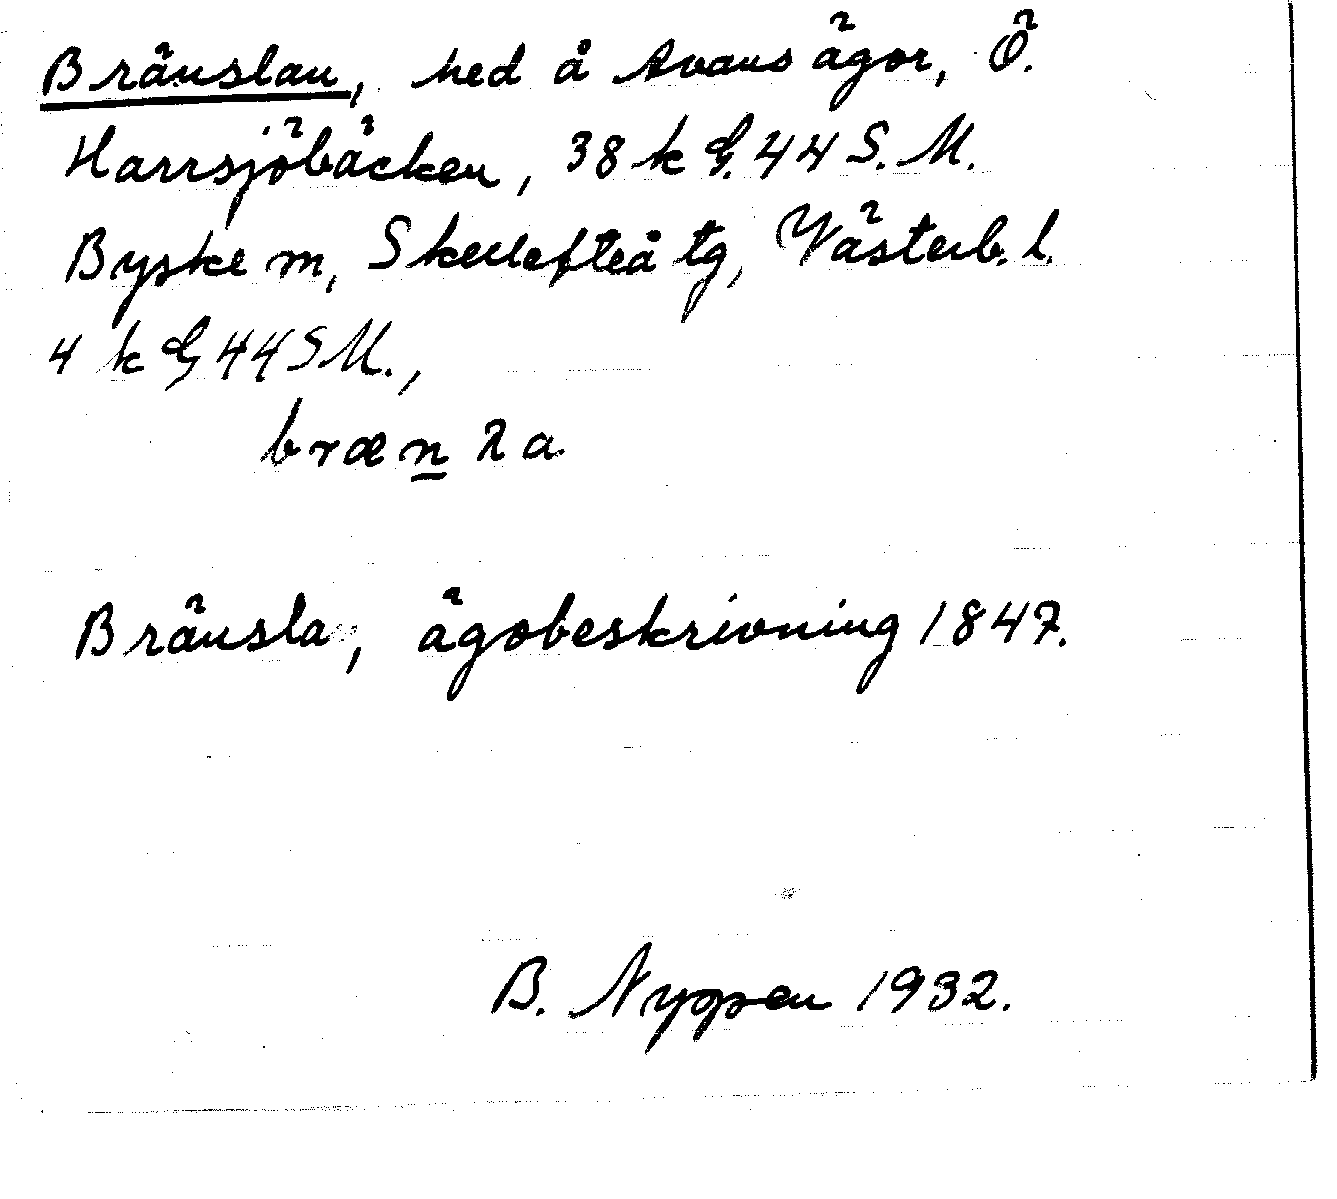 Bränslan, hed å Avans ägor, Ö.
Harrsjöbäcken, 38 k G. 44 S. M.
Byske m, Skellefteå tg, Västerb. l.
4 k G 44 S M.,
bræn̲ λa
Bränsla, ägobeskrivning 1847.
B. Nygren 1932.